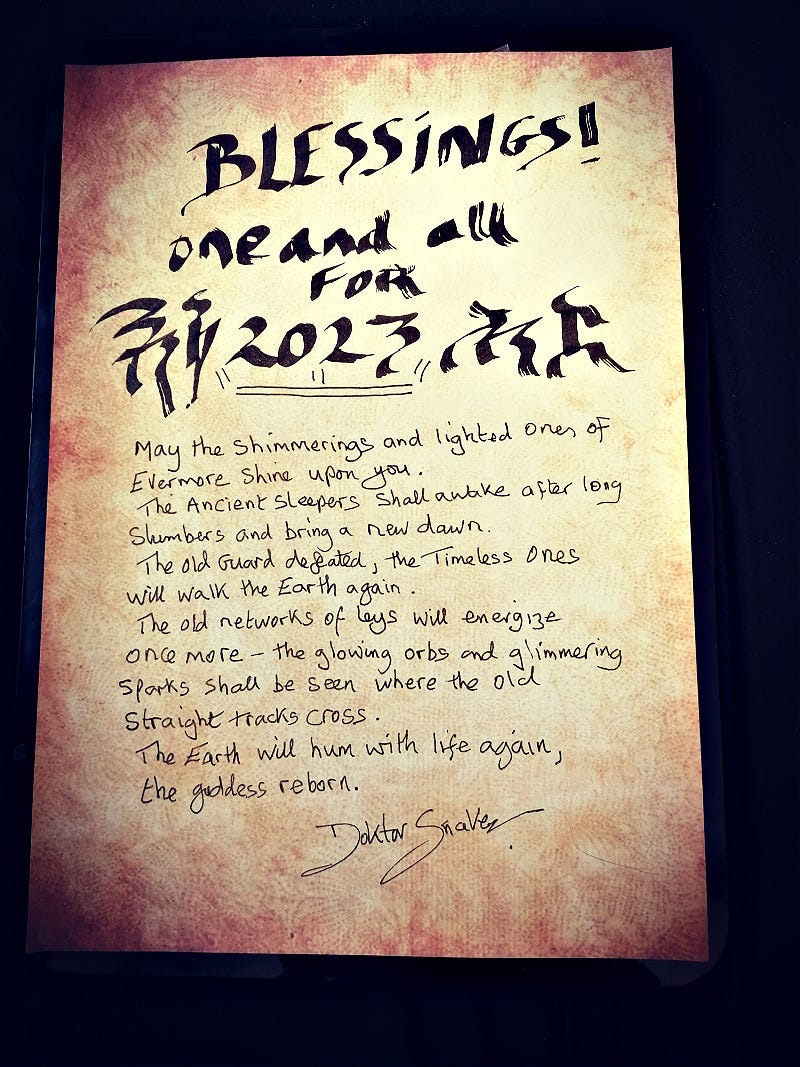 BLESSINGS!
one and all
FOR
2023
May the Shimmerings and lighted ones of
Evermore Shine upon you.
The Ancient Sleepers Shall awake after long
Slumbers and bring a new dawn.
The old Guard defeated, the Timeless Ones
will walk the Earth again.
The old networks of leys will energize
once more – the glowing orbs and glimmering
Sparks Shall be seen where the old
Straight tracks cross.
The Earth will hum with life again,
the goddess reborn.
Doktor Snake